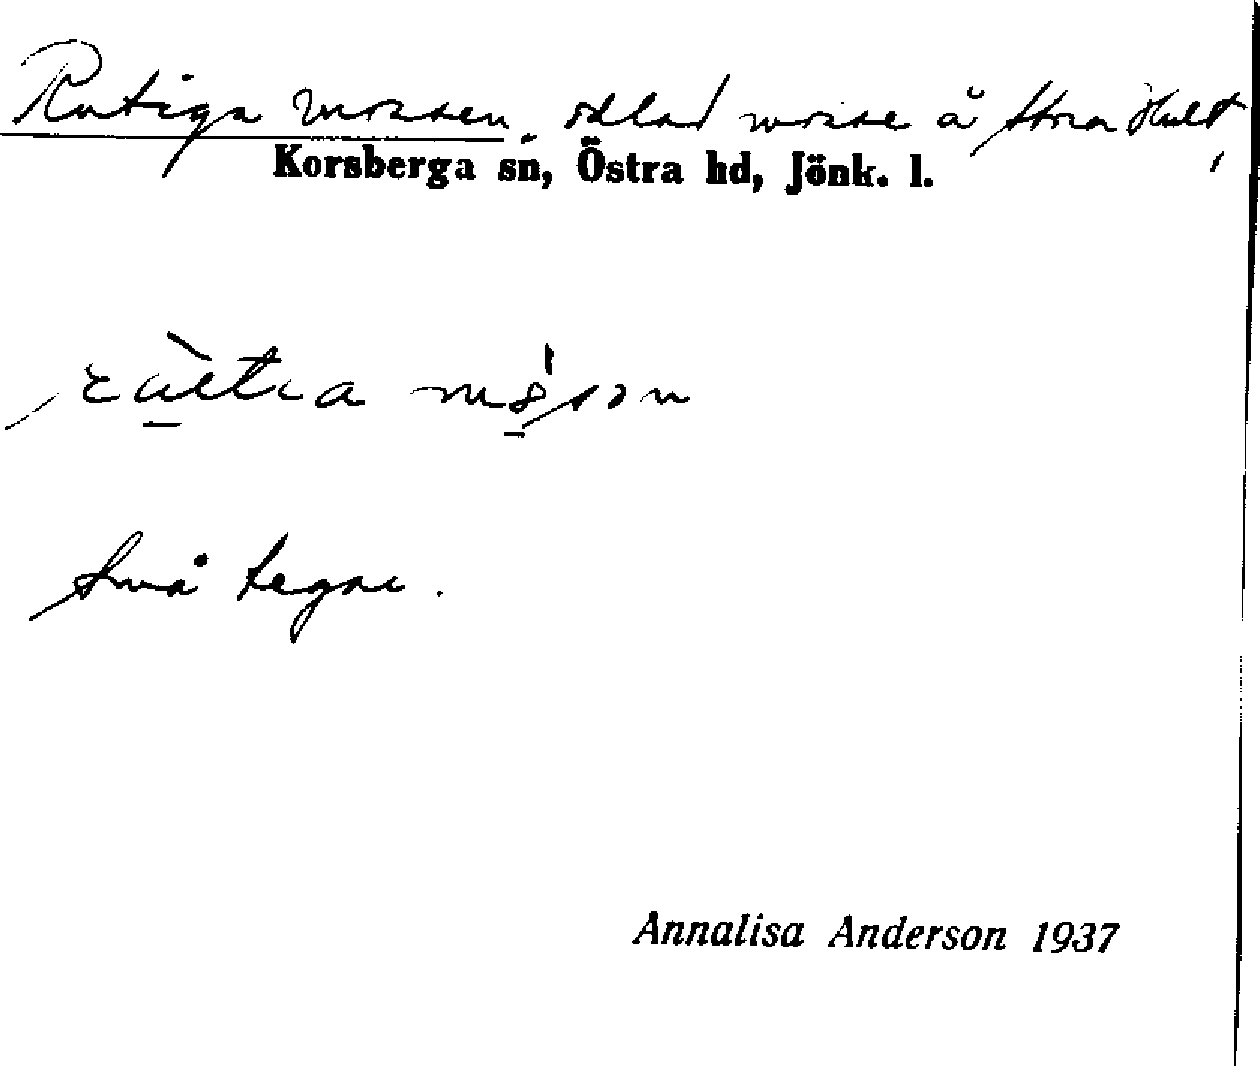 Rutiga mossen, odlad mosse å Stora Hult,
Korsberga sn, Östra hd, Jönk. l.
Små tegar.
Annalisa Anderson 1937